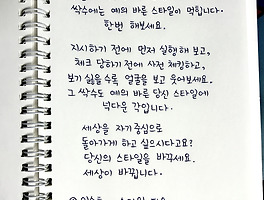 싹수에는 예의 바른 스타일이 먹힙니다.
한번 해보세요.
지시하기 전에 먼저 실행해 보고,
체크 당하기 전에 사전 체킹하고,
보기 싫을수록 얼굴을 보고 웃어보세요.
그 싹수도 예의 바른 당신 스타일에
넉다운 각입니다.
세상을 자기 중심으로
돌아가게 하고 싶으시다고요?
당신의 스타일을 바꾸세요.
세상이 바뀝니다.